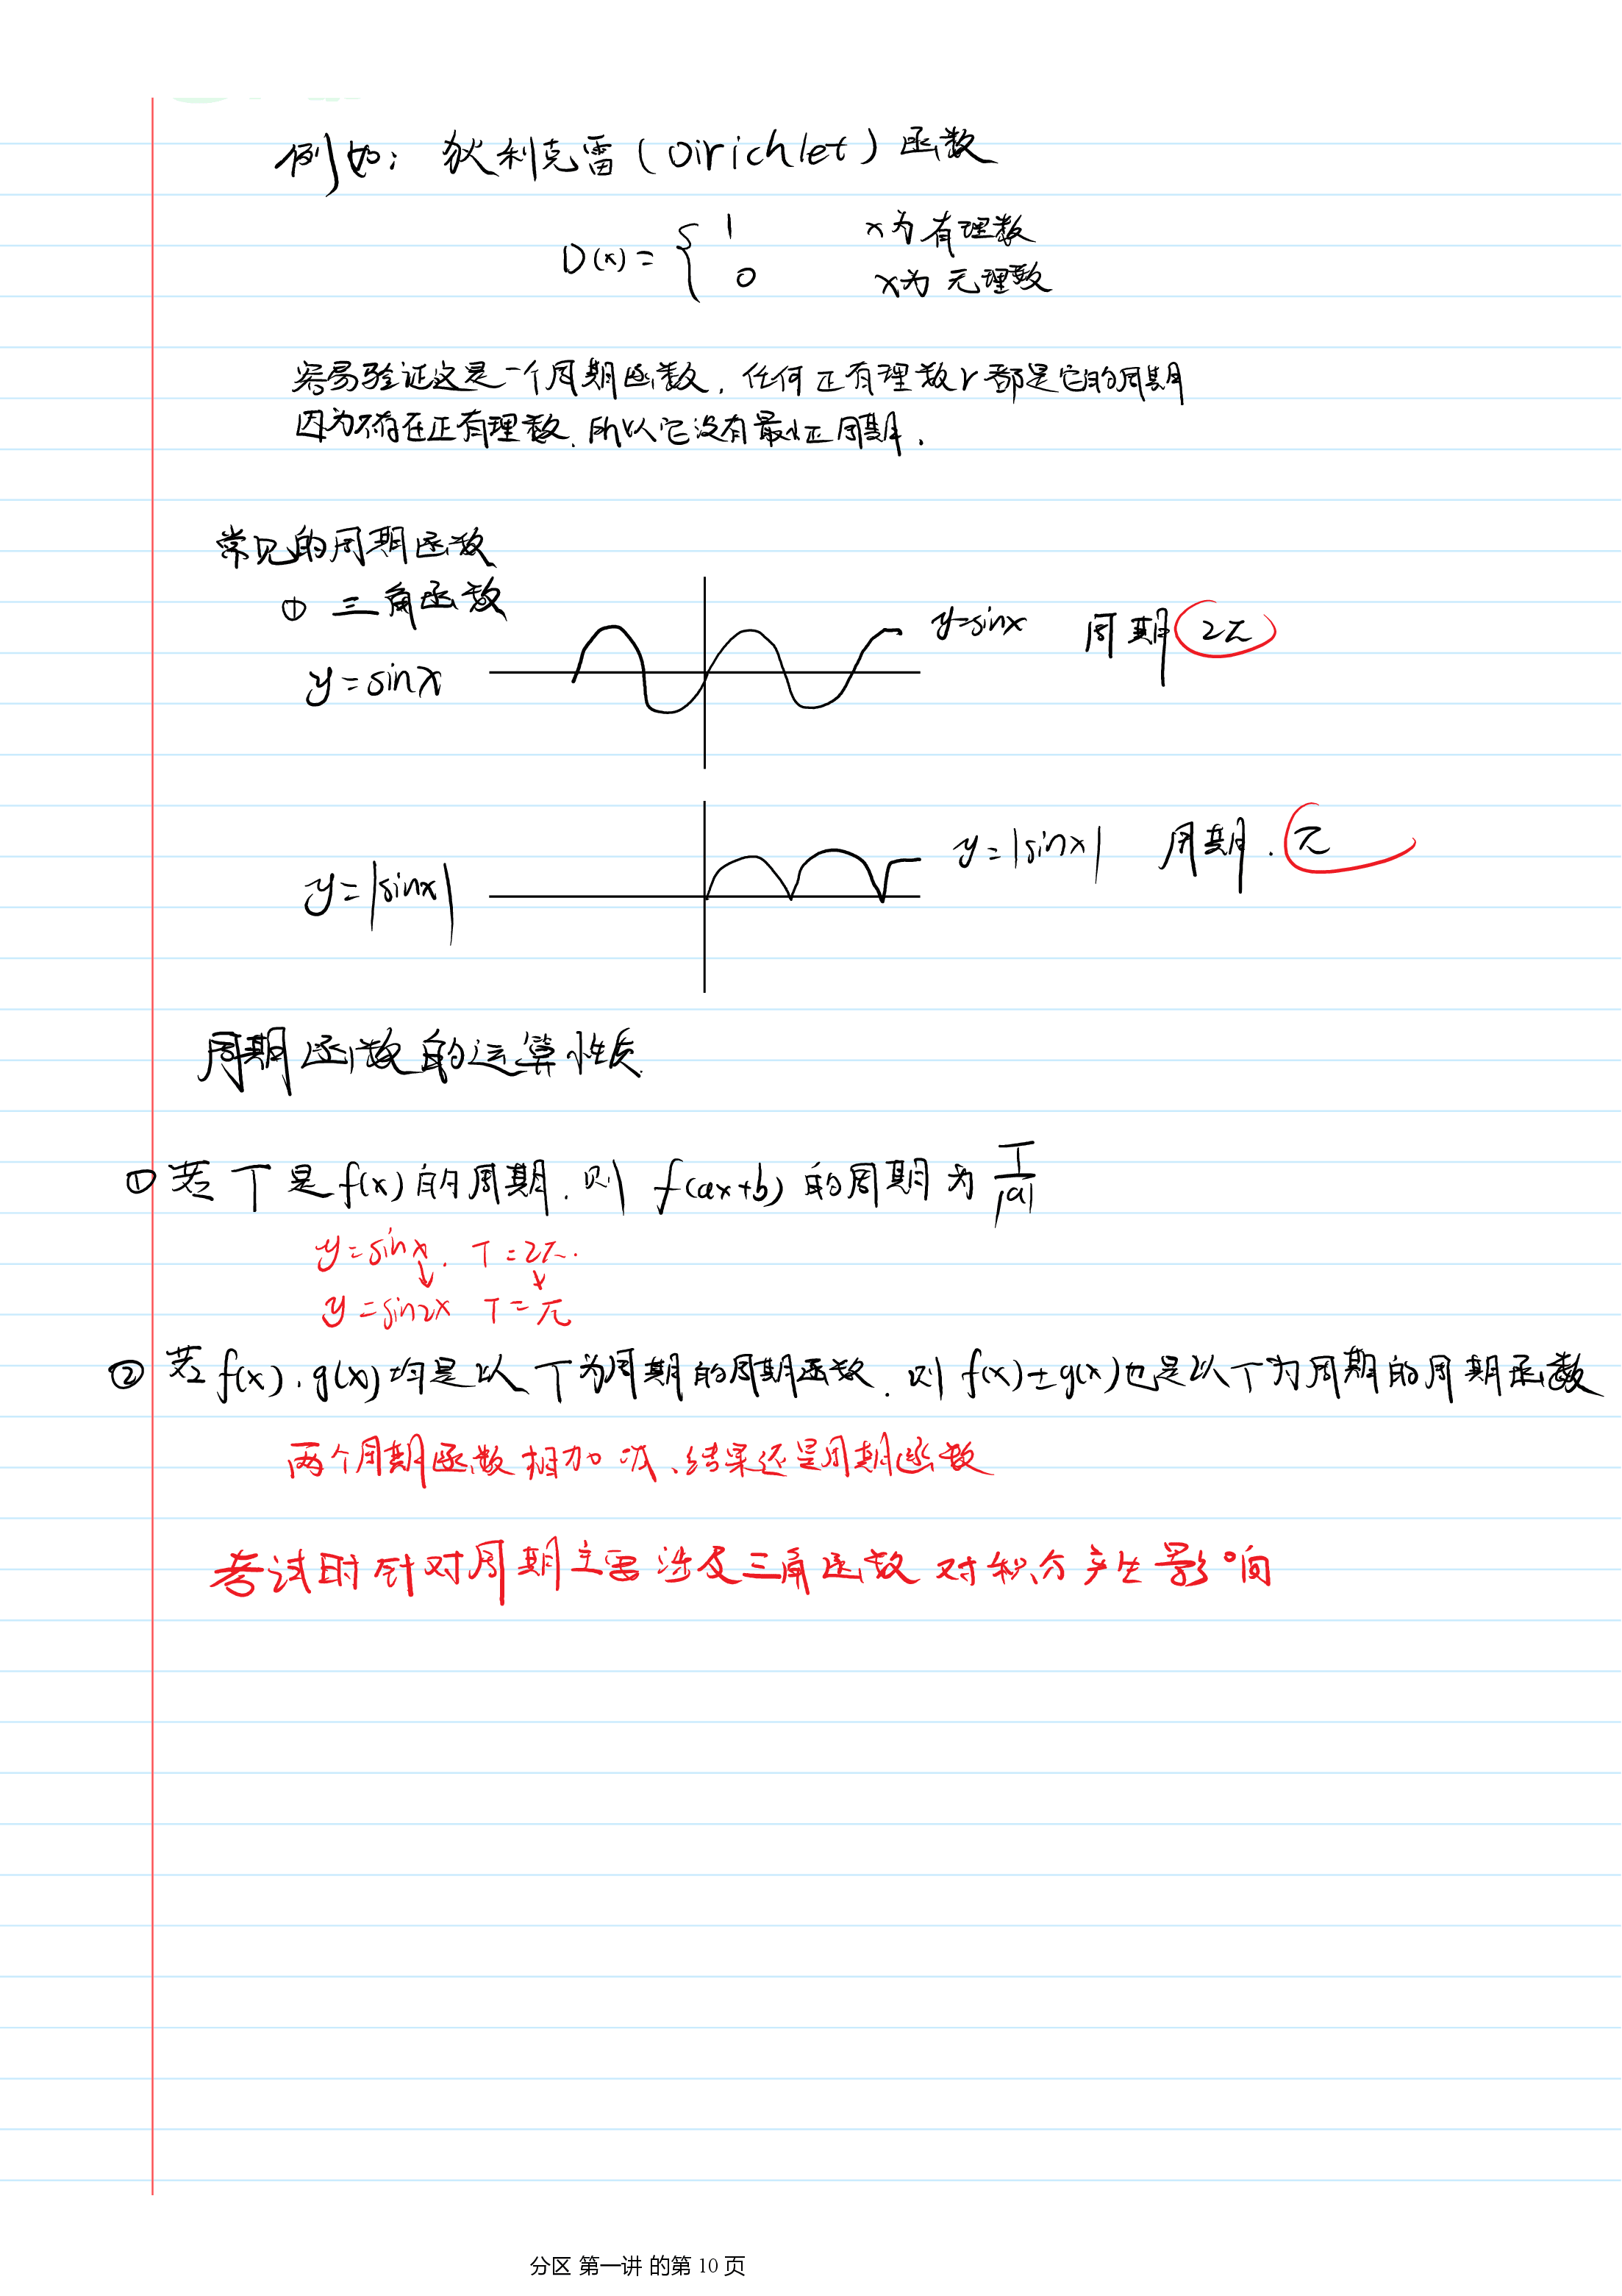 例如：狄利克雷(Dirichlet)函数
D(x) = { 1 x为有理数
0 x为无理数
容易验证这是一个周期函数，任何正有理数r都是它的周期
因为不存在正有理数，所以它没有最小正周期．
常见的周期函数
① 三角函数
y=sinx 周期 2π
y=sinx
y=|sinx| 周期．π
y=|sinx|
周期函数的运算性质．
① 若 T 是 f(x) 的周期．则 f(ax+b) 的周期为 T/|a|
y=sinx． T=2π．
↓ ↓
y=sin2x T=π
② 若 f(x)，g(x) 均是以 T 为周期的周期函数．则 f(x)±g(x) 也是以 T 为周期的周期函数
两个周期函数相加减、结果还是周期函数
考试时针对周期主要涉及三角函数对积分产生影响
分区 第一讲 的第 10 页